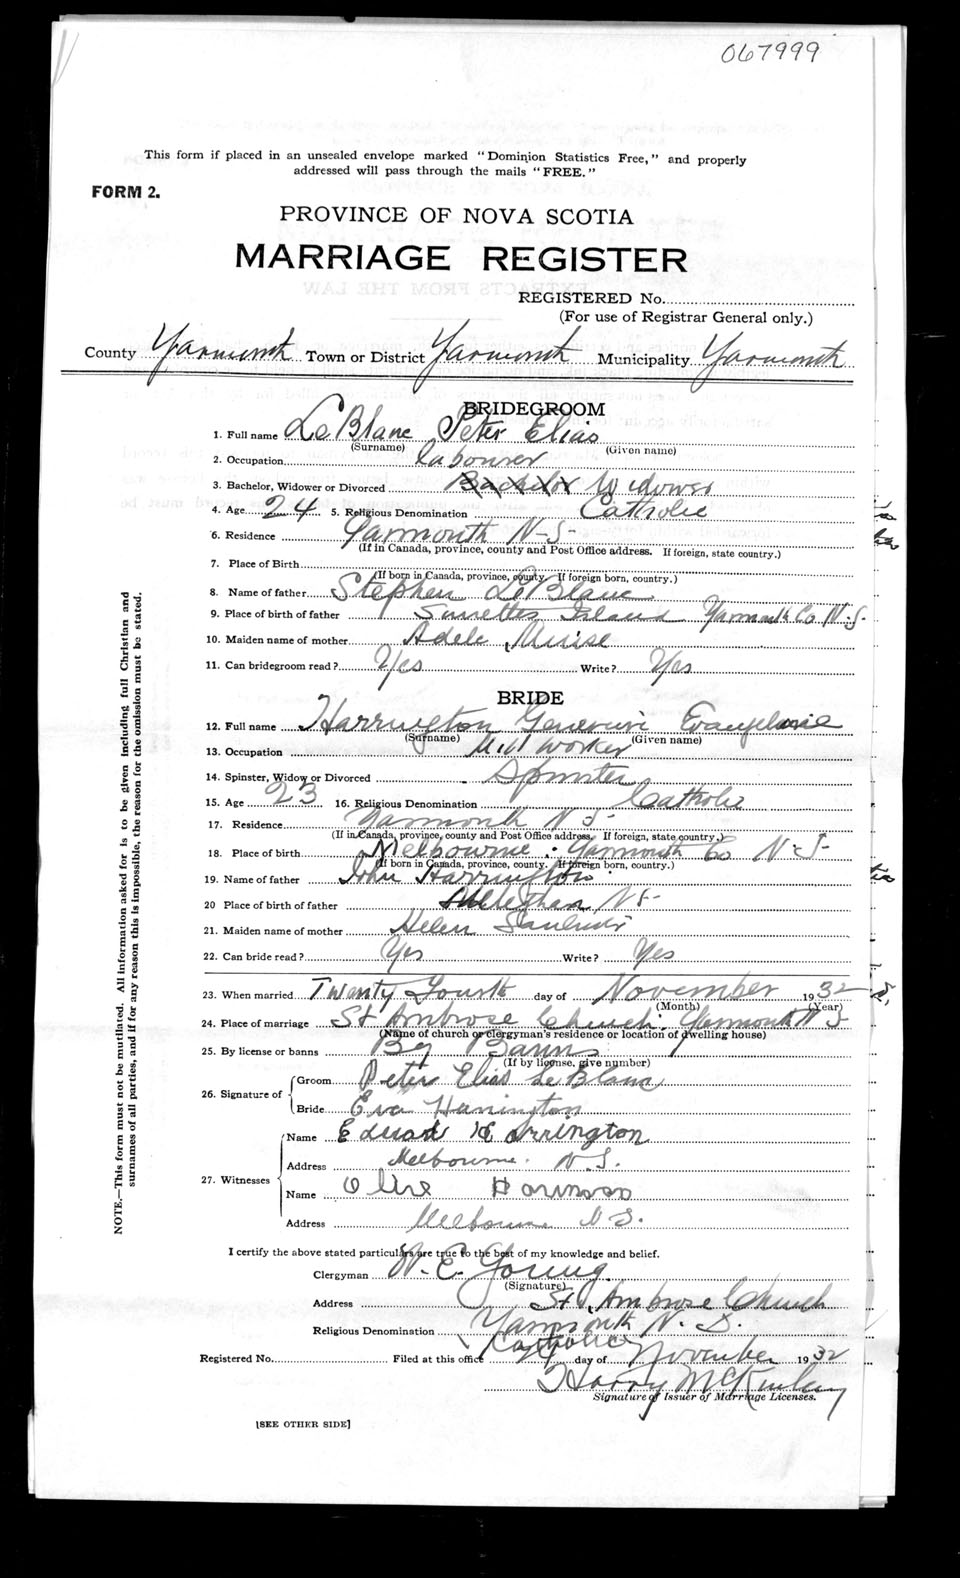 067999
This form if placed in an unsealed envelope marked "Dominion Statistics Free," and properly
addressed will pass through the mails "FREE."
FORM 2.
PROVINCE OF NOVA SCOTIA
MARRIAGE REGISTER
REGISTERED No.
(For use of Registrar General only.)
County Yarmouth Town or District Yarmouth Municipality Yarmouth
BRIDEGROOM
1. Full name LeBlanc Peter Elias
(Surname) (Given name)
2. Occupation labourer
3. Bachelor, Widower or Divorced Bachelor Widower
4. Age 24 5. Religious Denomination Catholic
6. Residence Yarmouth N-S-
(If in Canada, province, county and Post Office address. If foreign, state country.)
7. Place of Birth
(If born in Canada, province, county. If foreign born, country.)
8. Name of father Stephen LeBlanc
9. Place of birth of father Island Yarmouth Co N.S-
10. Maiden name of mother Adele Muise
11. Can bridegroom read? Yes Write? Yes
BRIDE
12. Full name Harrington Genevieve Evangeline
(Surname) (Given name)
13. Occupation Mill worker
14. Spinster, Widow or Divorced Spinster
15. Age 23 16. Religious Denomination Catholic
17. Residence Yarmouth N S-
(If in Canada, province, county and Post Office address. If foreign, state country.)
18. Place of birth Melbourne. Yarmouth Co N-S-
(If born in Canada, province, county. If foreign born, country.)
19. Name of father John Harrington
20 Place of birth of father Meteghan N S-
21. Maiden name of mother Helen Saulnier
22. Can bride read? Yes Write? Yes
23. When married Twenty Fourth day of November 1932
(Month) (Year)
24. Place of marriage St Ambrose Church. Yarmouth N S-
(Name of church or clergyman's residence or location of dwelling house)
25. By license or banns By Banns
(If by license, give number)
26. Signature of
Groom Peter Elias LeBlanc
Bride Eva Harrington
27. Witnesses
Name Eduard Harrington
Address Melbourne. N.S.
Name
Address Melbourne N S.
I certify the above stated particulars are true to the best of my knowledge and belief.
Clergyman W. E. Young.
(Signature)
Address St Ambrose Church
Yarmouth N. S.
Religious Denomination Catholic
Registered No. Filed at this office day of November 1932
Harry McKinley
Signature of Issuer of Marriage Licenses.
[SEE OTHER SIDE]
NOTE.—This form must not be mutilated. All information asked for is to be given including full Christian and
surnames of all parties, and if for any reason this is impossible, the reason for the omission must be stated.